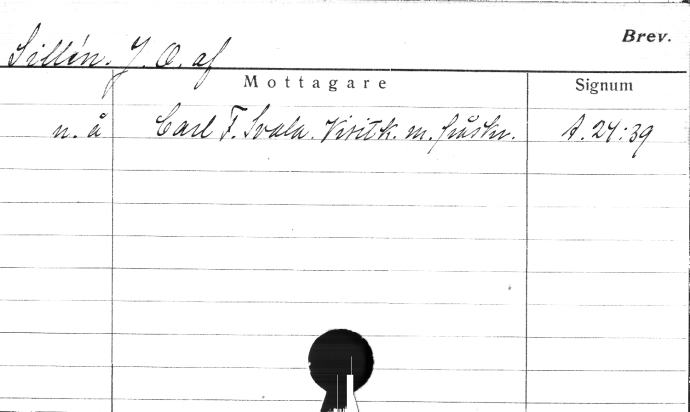 Brev.
Sillén. J. O. af
Mottagare Signum
n. å Carl F. Svala. Visitk. m. påskr. A. 24:39